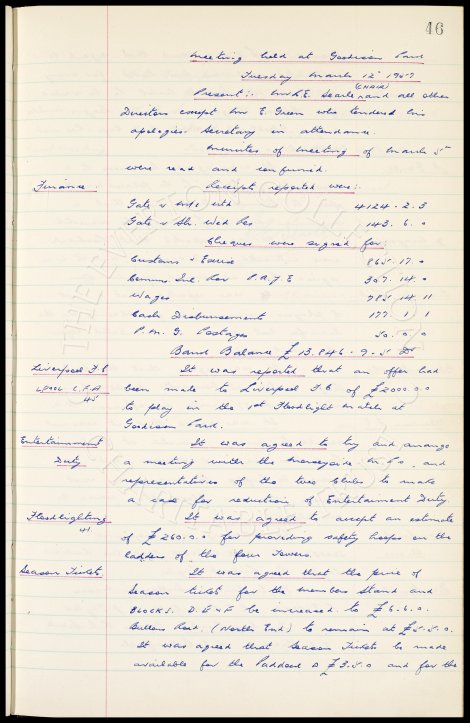 46
Meeting held at Goodison Park
Tuesday March 12th 1957
Present:- Mr R.E. Searle and all other
(CHAIR)
Directors except Mr E. Green who tendered his
apologies. Secretary in attendance.
Minutes of Meeting of March 5th
were read and confirmed.
Finance:
Receipts reported were:-
Gate v Utd 4124 . 2 . 3
Gate v Wed Res 143 . 6 . 0
Cheques were signed for:
Customs & Excise 865 . 17 . 0
Comms. Inl. Rev P.A.Y.E 357 . 14 . 0
Wages 785 . 14 . 11
Cash Disbursement 177 . 1 . 1
P.M.G. Postages 50 . 0 . 0
Bank Balance £13,846 . 9 . 5 Dr
Liverpool F.C
It was reported that an offer had
been made to Liverpool F.C of £2000.0.0
to play in the 1st Floodlight match at
Goodison Park.
Entertainment
Duty
It was agreed to try and arrange
a meeting with the Merseyside M.Ps. and
representatives of the two Clubs to make
a case for reduction of Entertainment Duty.
Floodlighting
It was agreed to accept an estimate
of £260.0.0 for providing safety hoops on the
ladders of the four Towers.
Season Tickets
It was agreed that the price of
Season tickets for the members Stand and
BLOCKS. D.E & F be increased to £6.6.0.
Bullens Road (North End) to remain at £5.5.0.
It was agreed that Season Tickets be made
available for the Paddock @ £3.5.0 and for the
THE EVERTON COLLECTION
CHARITABLE TRUST